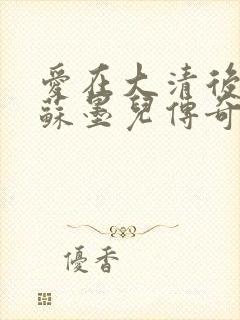 愛在大清後
蘇墨兒傳奇
優香